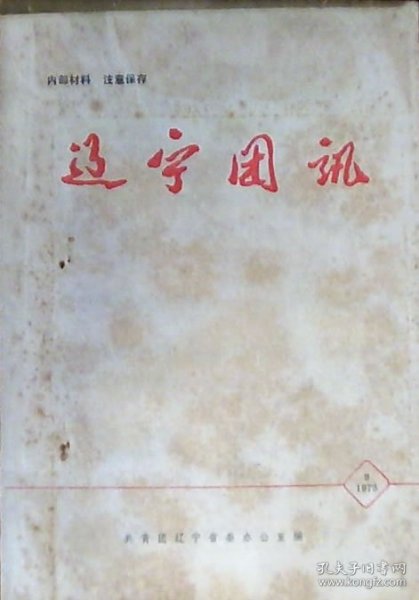 内部材料 注意保存
辽宁团讯
9
1978
共青团辽宁省委办公室编
孔夫子旧书网
www.kongfz.com